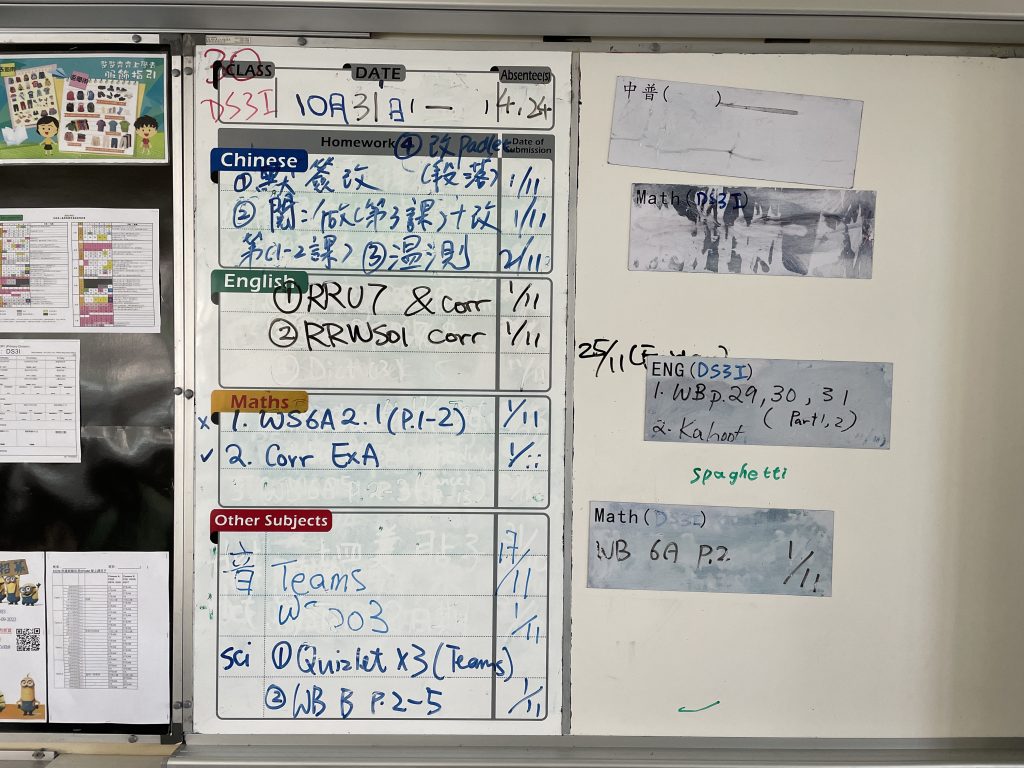 服飾指引
30
CLASS DATE Absentee(s)
DS3I 10月31日 一 14,24
Homework ④ 改 Padlet Date of Submission
Chinese
① 簽改 (段落) 1/11
② 閱:做(第3課)+改 1/11
第(1-2課) ③溫測 2/11
English
① RRU7 & corr 1/11
② RRWS01 corr 1/11
Maths
x 1. WS6A2.1(P.1-2) 1/11
✓ 2. Corr ExA 1/
Other Subjects
音 Teams 17/11
1/11
sci ① Quizlet x3 (Teams)
② WB B P.2-5 1/11
中普( )
Math(DS3I)
25/11
ENG(DS3I)
1. WB p.29, 30, 31
(Part 1, 2)
2. Kahoot
spaghetti
Math(DS3I)
WB 6A P.2 1/11
DS3I